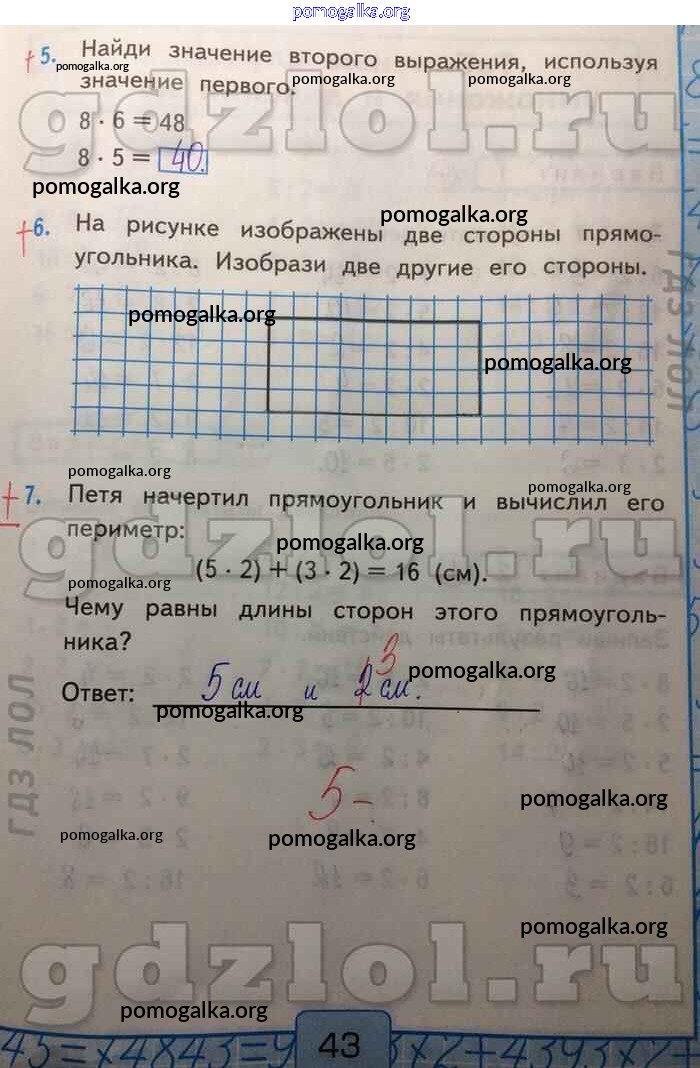 pomogalka.org
+ 5. Найди значение второго выражения, используя
pomogalka.org
значение первого.
pomogalka.org
pomogalka.org
gdzlol.ru
8 · 6 = 48
8 · 5 = 40.
pomogalka.org
pomogalka.org
+ 6. На рисунке изображены две стороны прямо-
угольника. Изобрази две другие его стороны.
pomogalka.org
pomogalka.org
ГДЗ ЛОЛ
pomogalka.org
pomogalka.org
+ 7. Петя начертил прямоугольник и вычислил его
периметр:
gdzlol.ru
pomogalka.org
(5 · 2) + (3 · 2) = 16 (см).
pomogalka.org
Чему равны длины сторон этого прямоуголь-
ника?
3
pomogalka.org
Ответ: 5 см и 2 см.
pomogalka.org
ГДЗ ЛОЛ
5-
pomogalka.org
pomogalka.org
pomogalka.org
pomogalka.org
gdzlol.ru
pomogalka.org
43